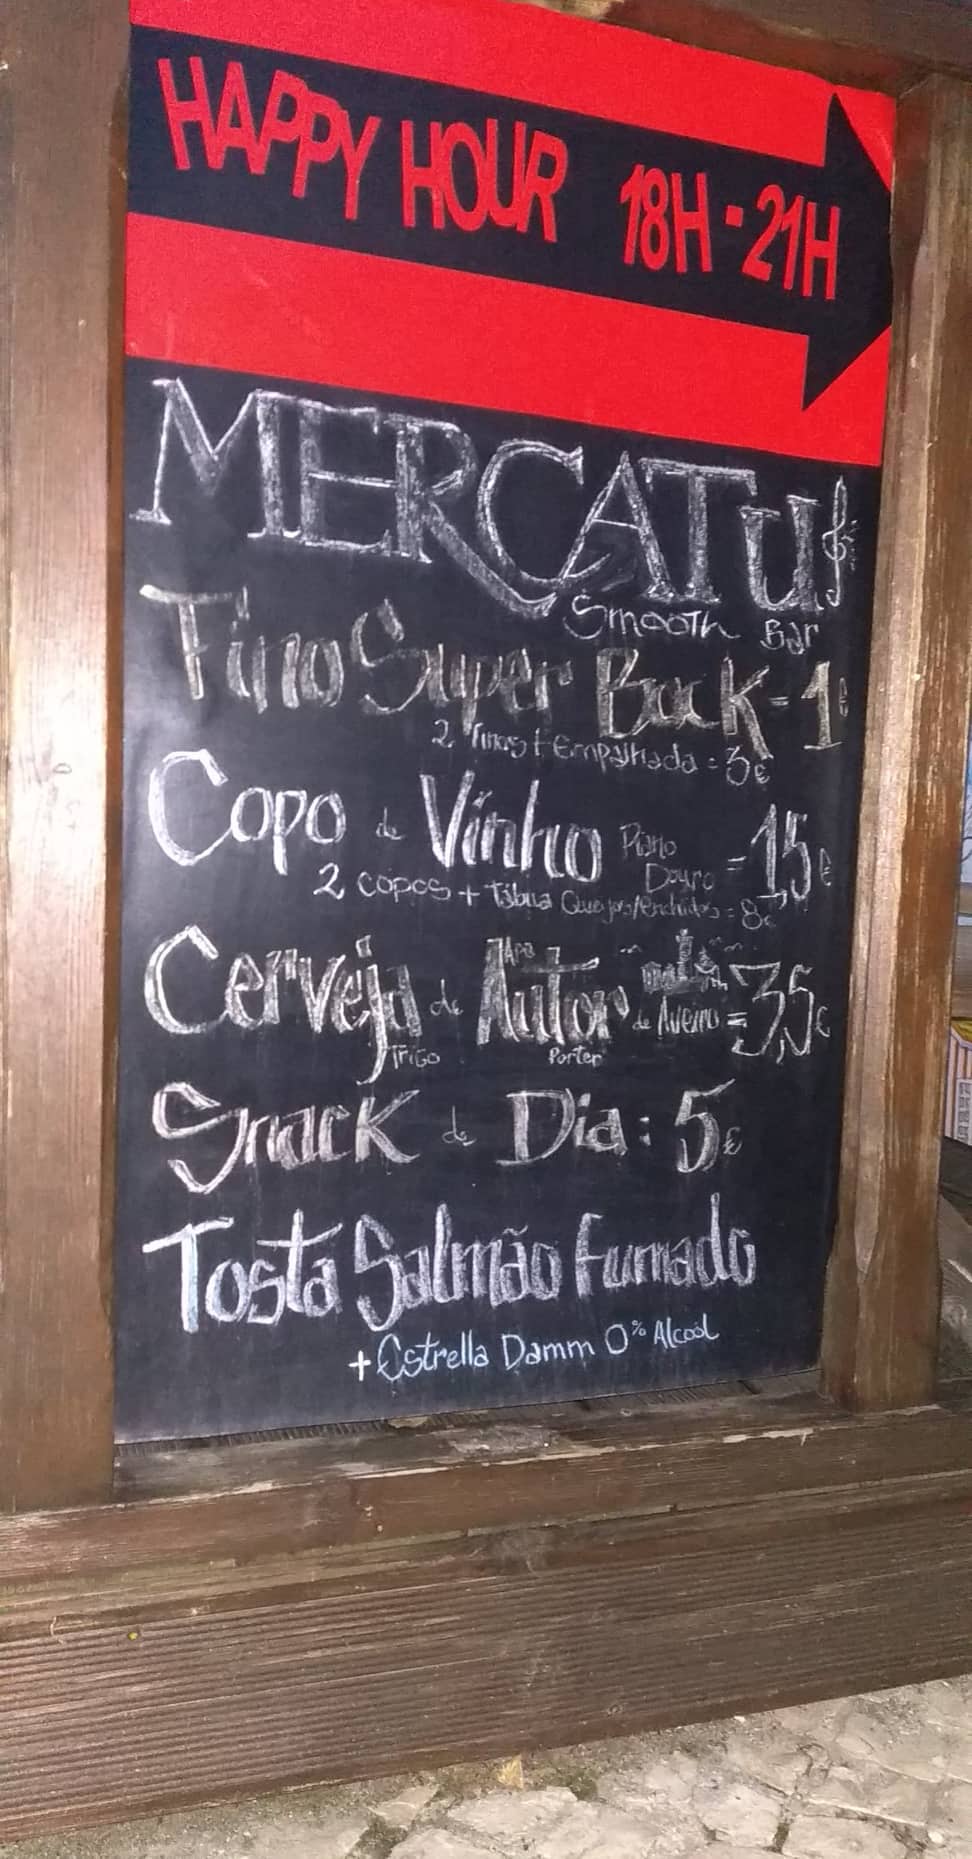 HAPPY HOUR 18H - 21H
MERCATU
Smooth Bar
Fino Super Bock - 1€
2 Finos + Empalhada = 3€
Copo de Vinho Piano Douro = 1,5€
2 copos + Tábua Queijos/Enchidos = 8€
Cerveja de Autor de Aveiro = 3,5€
Trigo Porter
Snack de Dia: 5€
Tosta Salmão Fumado
+ Estrella Damm 0% Alcool